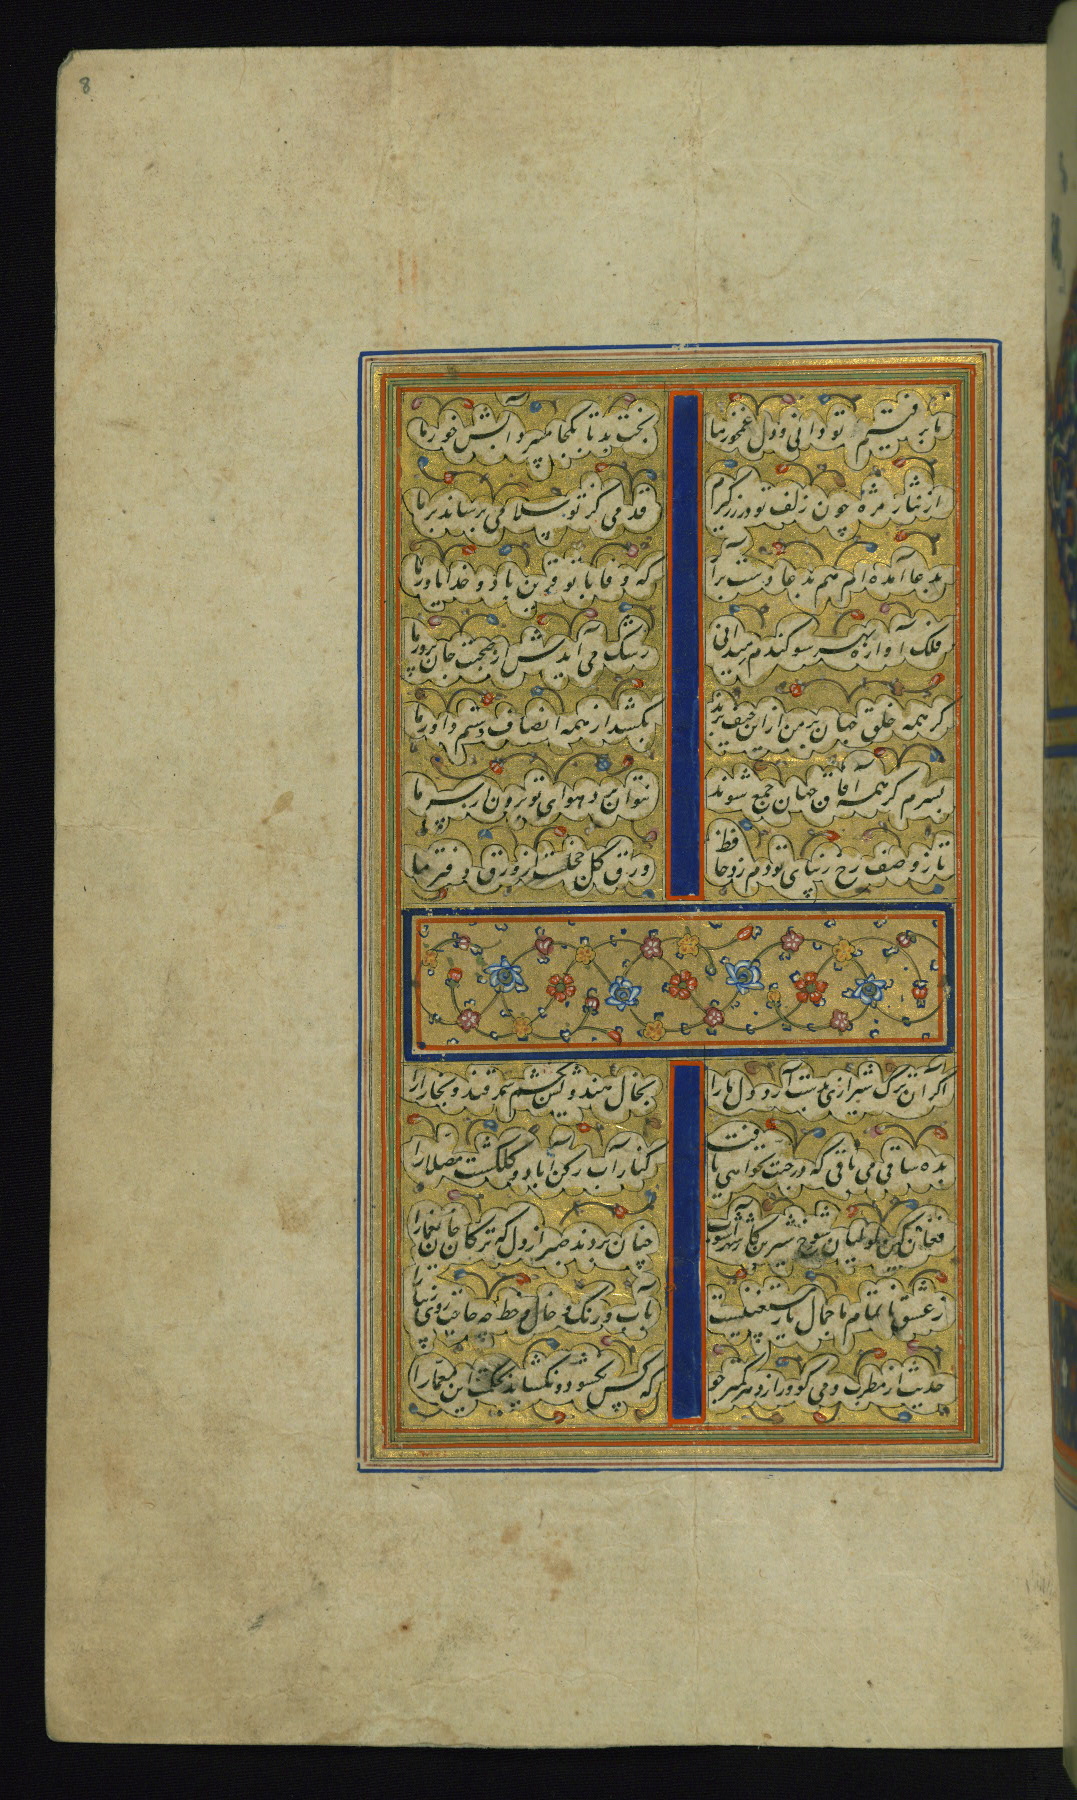 8
ما برفتیم تو دانی و دل غمخور ما
بخت بد تا بکجا میبرد آبش خور ما
از نثار مژه چون زلف تو در زر گیرم
قدمی کز تو سلامی برساند بر ما
بدعا آمده ام هم بدعا دست برآر
که وفا با تو قرین باد و خدا یاور ما
فلک آواره بهر سو کندم میدانی
رشک می آیدش از صحبت جان پرور ما
گر همه خلق جهان بر من از این حیف برند
بکشد از همه انصاف ستم داور ما
بسرم گر همه آفاق جهان جمع شوند
نتوان برد هوای تو برون از سر ما
تا ز وصف رخ زیبای تو دم زد حافظ
ورق گل خجلست از ورق دفتر ما
اگر آن ترک شیرازی بدست آرد دل ما را
بخال هندویش بخشم سمرقند و بخارا را
بده ساقی می باقی که در جنت نخواهی یافت
کنار آب رکن آباد و گلگشت مصلا را
فغان کین لولیان شوخ شیرین کار شهر آشوب
چنان بردند صبر از دل که ترکان خوان یغما را
ز عشق ناتمام ما جمال یار مستغنیست
بآب و رنگ و خال و خط چه حاجت روی زیبا را
حدیث از مطرب و می گو و راز دهر کمتر جو
که کس نکشود و نگشاید بحکمت این معما را